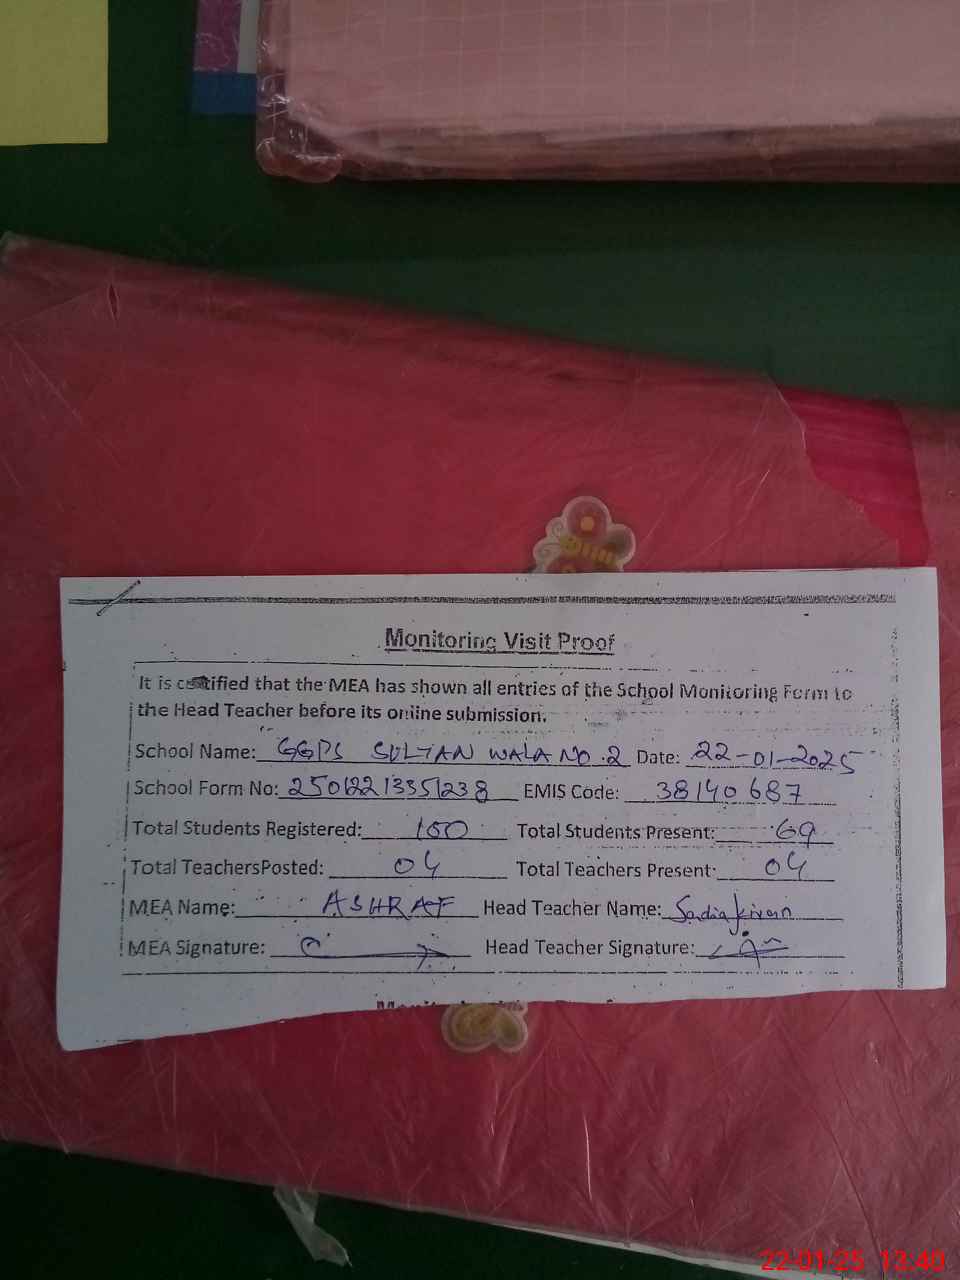 Monitoring Visit Proof
It is certified that the MEA has shown all entries of the School Monitoring Form to
the Head Teacher before its online submission.
School Name: GGPS SULTAN WALA NO.2 Date: 22-01-2025
School Form No: 25012213351238 EMIS Code: 38140687
Total Students Registered: 100 Total Students Present: 69
Total TeachersPosted: 04 Total Teachers Present: 04
MEA Name: ASHRAF Head Teacher Name: Sadia Kiran
MEA Signature: Head Teacher Signature:
22-01-25 13:40